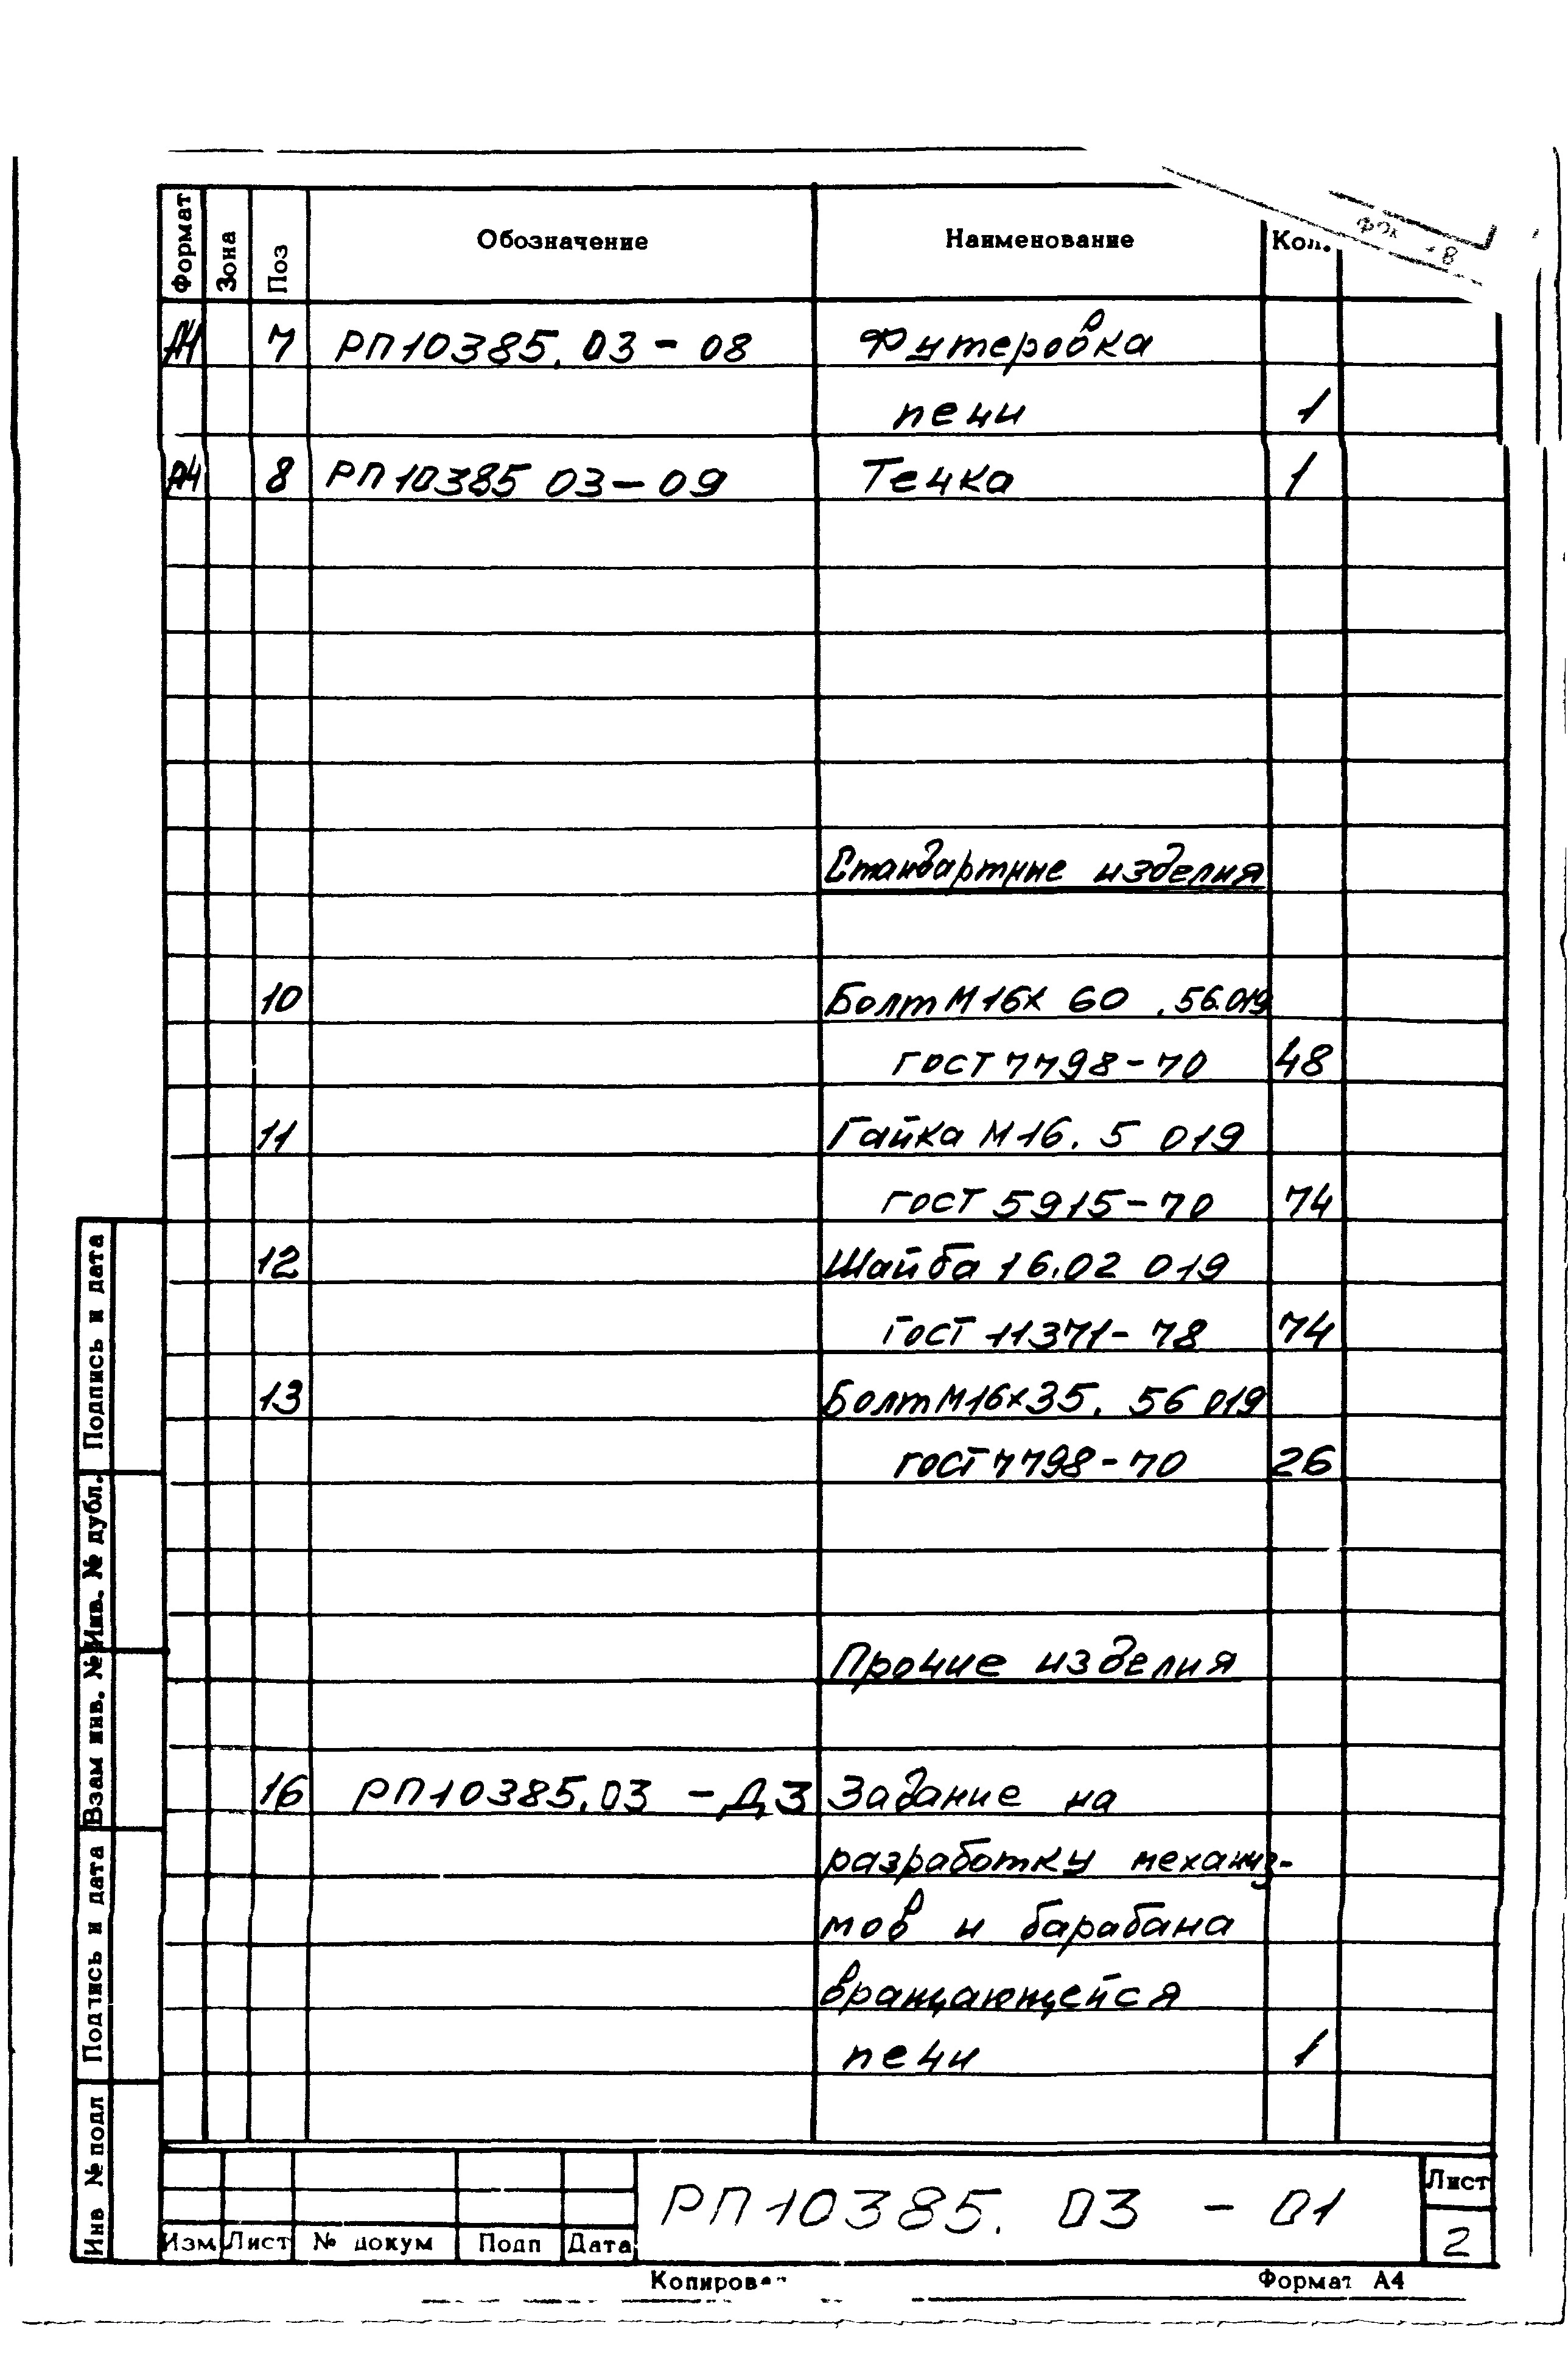 Формат Зона Поз Обозначение Наименование Кол.
7 РП10385.03-08 Футеровка
печи 1
А4 8 РП10385 03-09 Течка 1
Стандартные изделия
10 Болт М16х60 .56.019
ГОСТ 7798-70 48
11 Гайка М16.5 019
ГОСТ 5915-70 74
12 Шайба 16.02 019
ГОСТ 11371-78 74
13 Болт М16х35. 56 019
ГОСТ 7798-70 26
Прочие изделия
16 РП10385.03 -ДЗ Задание на
разработку механиз-
мов и барабана
вращающейся
печи 1
Подпись и дата
Инв. № дубл.
Взам инв. №
Подпись и дата
Инв № подл
РП10385. 03 - 01
Лист
2
Изм Лист № докум Подп Дата
Формат А4